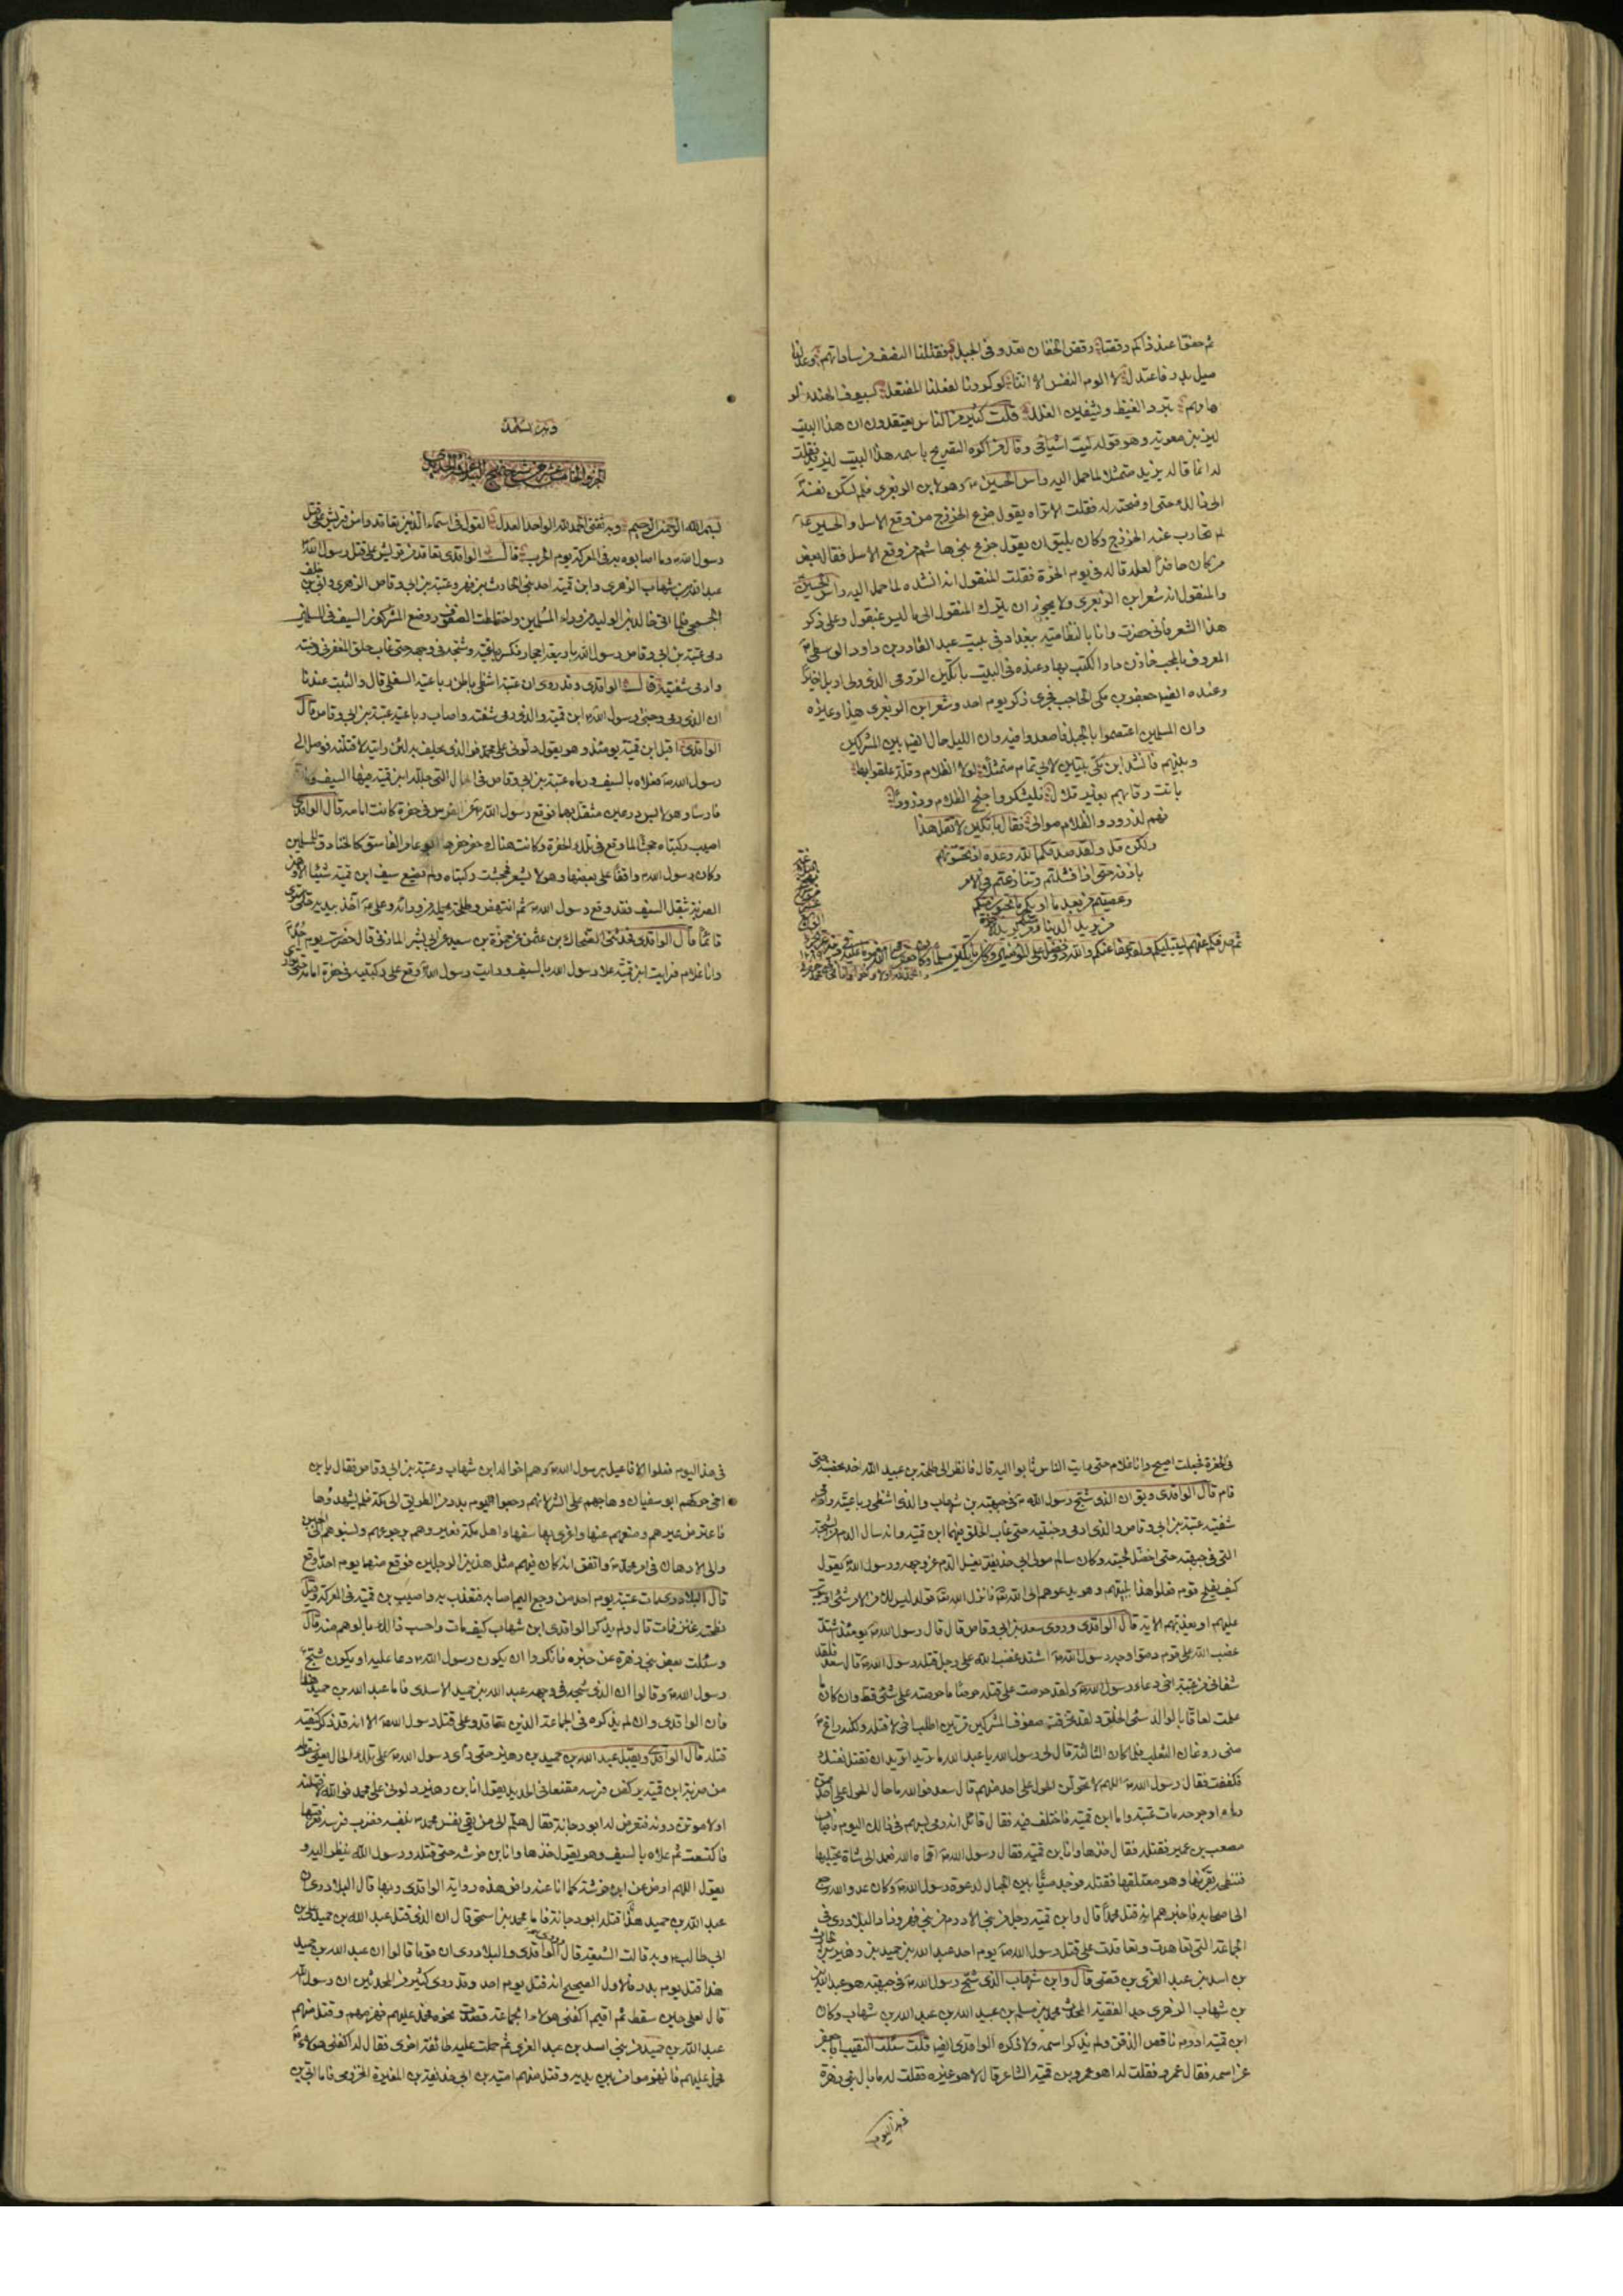 ثم حفوا عند ذاكم رقصا رقص الحفان تعدو في الجبل فقتلنا النصف من ساداتهم وعدلنا
ميل بدر فاعتدل لا الوم النفس الا اننا لو كررنا لفعلنا المفتعل بسيوف الهند تعلو
هامهم تبرد الغيظ ويشفين الغلل قلت كثير من الناس يعتقدون ان هذا البيت
ليزيد بن معوية وهو قوله ليت اشياخي وقال من اكره التصريح باسمه هذا البيت ليزيد فقلت
له انما قاله يزيد متمثلا لما حمل اليه راس الحسين وهو لابن الزبعرى فلم تسكن نفسه
الى ذلك حتى اوضحته له فقلت الا تراه يقول جزع الخزرج من وقع الاسل والحسين
لم تحارب عنه الخزرج وكان يليق ان يقول جزع بني هاشم من وقع الاسل فقال بعض
من كان حاضرا لعله قاله في يوم الحرة فقلت المنقول انه انشده لما حمل اليه راس الحسين
والمنقول انه شعر ابن الزبعرى ولا يجوز ان يترك المنقول الى ما ليس بمنقول وعلى ذكر
هذا الشعر فاني حضرت وانا بالنظامية ببغداد في بيت عبد القادر بن داود الواسطي
المعروف بالمحب خازن دار الكتب بها وعنده في البيت باتكين الرومي الذي ولي اربل اخيرا
وعنده ايضا جعفر بن مكي الحاجب فجرى ذكر يوم احد وشعر ابن الزبعرى هذا وغيره
وان المسلمين اعتصموا بالجبل فاصعدوا فيه وان الليل حال ايضا بين المشركين
وبينهم فانشد ابن مكي بيتين لابي تمام متمثلا لولا الظلام وقلة علقوا بها
باتت رقابهم بغير قلال فليشكروا جنح الظلام ودرودا
فهم لدرود والظلام موالي فقال باتكين لا تقل هذا
ولكن قل ولقد صدقكم الله وعده اذ تحسونهم
باذنه حتى اذا فشلتم وتنازعتم في الامر
وعصيتم من بعد ما اريكم ما تحبون منكم
من يريد الدنيا ومنكم من يريد الاخرة
ثم صرفكم عنهم ليبتليكم ولقد عفا عنكم والله ذو فضل على المؤمنين وكان باتكين مسلما وكان جعفر
وبه نستعين
الجزو الخامس عشر من شرح نهج البلاغة لابن ابي الحديد
بسم الله الرحمن الرحيم وبه ثقتي الحمد لله الواحد العدل القول في اسماء الذين تعاقدوا من قريش على قتل
رسول الله وما اصابوه به في المعركة يوم الحرب قال الواقدي تعاقد من قريش على قتل رسول الله
عبد الله بن شهاب الزهري وابن قمية احد بني الحارث بن فهر وعتبة بن ابي وقاص الزهري وابي بن خلف
الجمحي فلما اتى خالد بن الوليد من وراء المسلمين واختلطت الصفوف ووضع المشركون السيف في المسلمين
رمى عتبة بن ابي وقاص رسول الله باربعة احجار فكسر رباعيته وشجه في وجهه حتى غاب حلق المغفر في وجنته
وادمى شفتيه قال الواقدي وقد روى ان عتبة اشظى باطن رباعيته السفلى قال والثبت عندنا
ان الذي رمى وجنتي رسول الله ابن قمية والذي رمى شفته واصاب رباعيته عتبة بن ابي وقاص قال
الواقدي اقبل ابن قمية يومئذ وهو يقول دلوني على محمد فوالذي يحلف به لئن رايته لاقتلنه فوصل الى
رسول الله فعلاه بالسيف ورماه عتبة بن ابي وقاص في الحال التي جلله ابن قمية فيها السيف وكان
فارسا وهو لابس درعين مثقل بهما فوقع رسول الله عن الفرس في حفرة كانت امامه قال الواقدي
اصيب ركبتاه جحشا لما وقع في تلك الحفرة وكانت هناك حفر حفرها ابو عامر الفاسق كالخنادق للمسلمين
وكان رسول الله واقفا على بعضها وهو لا يشعر فجحشت ركبتاه ولم يصنع سيف ابن قمية شيئا الا وهن
الضربة بثقل السيف فقد وقع رسول الله ثم انتهض وطلحة يحمله من ورائه وعلي اخذ بيديه حتى استوى
قائما قال الواقدي فحدثني الضحاك بن عثمن عن حمزة بن سعيد عن ابي بشر المازني قال حضرت يوم احد
وانا غلام فرايت ابن قمية علا رسول الله بالسيف ورايت رسول الله وقع على ركبتيه في حفرة امامه حتى توارى
في الحفرة فجعلت اصيح وانا غلام حتى رايت الناس ثابوا اليه قال فانظر الى طلحة بن عبيد الله اخذ بحضنه حتى
قام قال الواقدي ويق ان الذي شج رسول الله في جبهته بن شهاب والذي اشظى رباعيته وادمى
شفتيه عتبة بن ابي وقاص والذي ادمى وجنتيه حتى غاب الحلق فيهما ابن قمية وانه سال الدم من الشجة
التي في جبهته حتى اخضل لحيته وكان سالم مولى ابي حذيفة يغسل الدم عن وجهه ورسول الله يقول
كيف يفلح قوم فعلوا هذا بنبيهم وهو يدعوهم الى الله تعا فانزل الله تعا قوله ليس لك من الامر شئ او يتوب
عليهم او يعذبهم الاية قال الواقدي وروى سعد بن ابي وقاص قال قال رسول الله يومئذ اشتد
غضب الله على قوم دموا وجه رسول الله اشتد غضب الله على رجل قتله رسول الله قال سعد فلقد
شفاني من عتبة اخي دعاء رسول الله ولقد حرصت على قتله حرصا ما حرصته على شئ قط وان كان ما
علمت لعاقا بالوالد سئ الخلق ولقد تخرقت صفوف المشركين مرتين اطلب اخي لاقتله ولكنه راغ
مني روغان الثعلب فلما كان الثالثة قال لي رسول الله يا عبد الله ما تريد اتريد ان تقتل نفسك
فكففت فقال رسول الله اللهم لا تحولن الحول على احد منهم قال سعد فوالله ما حال الحول على احد ممن
رماه او جرحه مات عتبة واما ابن قمية فاختلف فيه فقال قائل انه رمى بسهم في ذلك اليوم فاصاب
مصعب بن عمير فقتله فقال خذها وانا بن قمية فقال رسول الله اقماه الله فعمد الى شاة يحتلبها
فنطحته بقرنها وهو معتلقها فقتله فوجد ميتا بين الجبال لدعوة رسول الله وكان عدو الله رجع
الى اصحابه فاخبرهم انه قتل محمدا قال وابن قمية رجل من بني الادرم من بني فهر وزاد البلاذري في
الجماعة التي تعاهدت وتعاقدت على قتل رسول الله يوم احد عبد الله بن حميد بن زهير بن الحارث
بن اسد بن عبد العزى بن قصي قال وابن شهاب الذي شج رسول الله في جبهته هو عبد الله
بن شهاب الزهري جد الفقيه المحدث محمد بن مسلم بن عبيد الله بن عبد الله بن شهاب وكان
ابن قمية ادرم ناقص الذقن ولم يذكر اسمه ولا ذكره الواقدي ايضا قلت سئلت النقيب ابا جعفر
عن اسمه فقال عمرو فقلت له اهو عمرو بن قمية الشاعر قال لا هو غيره فقلت له ما بال بني زهرة
في هذا اليوم
في هذا اليوم فعلوا الافاعيل برسول الله وهم اخواله ابن شهاب وعتبة بن ابي وقاص فقال يابن
اخي حركهم ابو سفيان وهاجهم على الشر لانهم رجعوا يوم بدر من الطريق الى مكة فلم يشهدوها
فاعترض عيرهم ومنعهم عنها واغرى بها سفهاء اهل مكة فعيروهم برجوعهم ونسبوهم الى الجبن
والى الادهان في امر محمد واتفق انه كان فيهم مثل هذين الرجلين فوقع منهما يوم احد ما وقع
قال البلاذري مات عتبة يوم احد من وجع اليم اصابه فتعذب به واصيب بن قمية في المعركة وقيل
نطحته عنز فمات قال ولم يذكر الواقدي ابن شهاب كيف مات واحسب ذلك بالوهم منه قال
وسئلت بعض بني زهرة عن خبره فانكروا ان يكون رسول الله دعا عليه او يكون شج
رسول الله وقالوا ان الذي شجه في وجهه عبد الله بن حميد الاسدي فاما عبد الله بن حميد
فان الواقدي وان لم يذكره في الجماعة الذين تعاقدوا على قتل رسول الله الا انه قد ذكر كيفية
قتله قال الواقدي ويقبل عبد الله بن حميد بن زهير حتى راى رسول الله على تلك الحال يعني سقوطه
من ضربة ابن قمية يركض فرسه مقنعا في الحديد يقول انا بن زهير دلوني على محمد فوالله لاقتلنه
او لاموتن دونه فتعرض له ابو دجانة فقال هلم الى من يقي نفس محمد بنفسه فضرب فرسه فعرقبها
فاكتسعت ثم علاه بالسيف وهو يقول خذها وانا بن خرشة حتى قتله ورسول الله ينظر اليه و
يقول اللهم ارض عن ابن خرشة كما انا عنه راض هذه رواية الواقدي وبها قال البلاذري ان
عبد الله بن حميد هذا قتله ابو دجانة فاما محمد بن اسحق قال ان الذي قتل عبد الله بن حميد علي بن
ابي طالب وبه قالت الشيعة قال الواقدي والبلاذري ان قوما قالوا ان عبد الله بن حميد
هذا قتل يوم بدر فالاول الصحيح انه قتل يوم احد وقد روى كثير من المحدثين ان رسول الله
قال لعلي حين سقط ثم اقيم اكفني هؤلاء الجماعة قصدت نحوه فحمل عليهم فهزمهم وقتل منهم
عبد الله بن حميد من بني اسد بن عبد العزى ثم حملت عليه طائفة اخرى فقال له اكفني هؤلاء
فحمل عليهم فانهزموا من بين يديه وقتل منهم امية بن ابي حذيفة بن المغيرة المخزومي فاما ابي بن